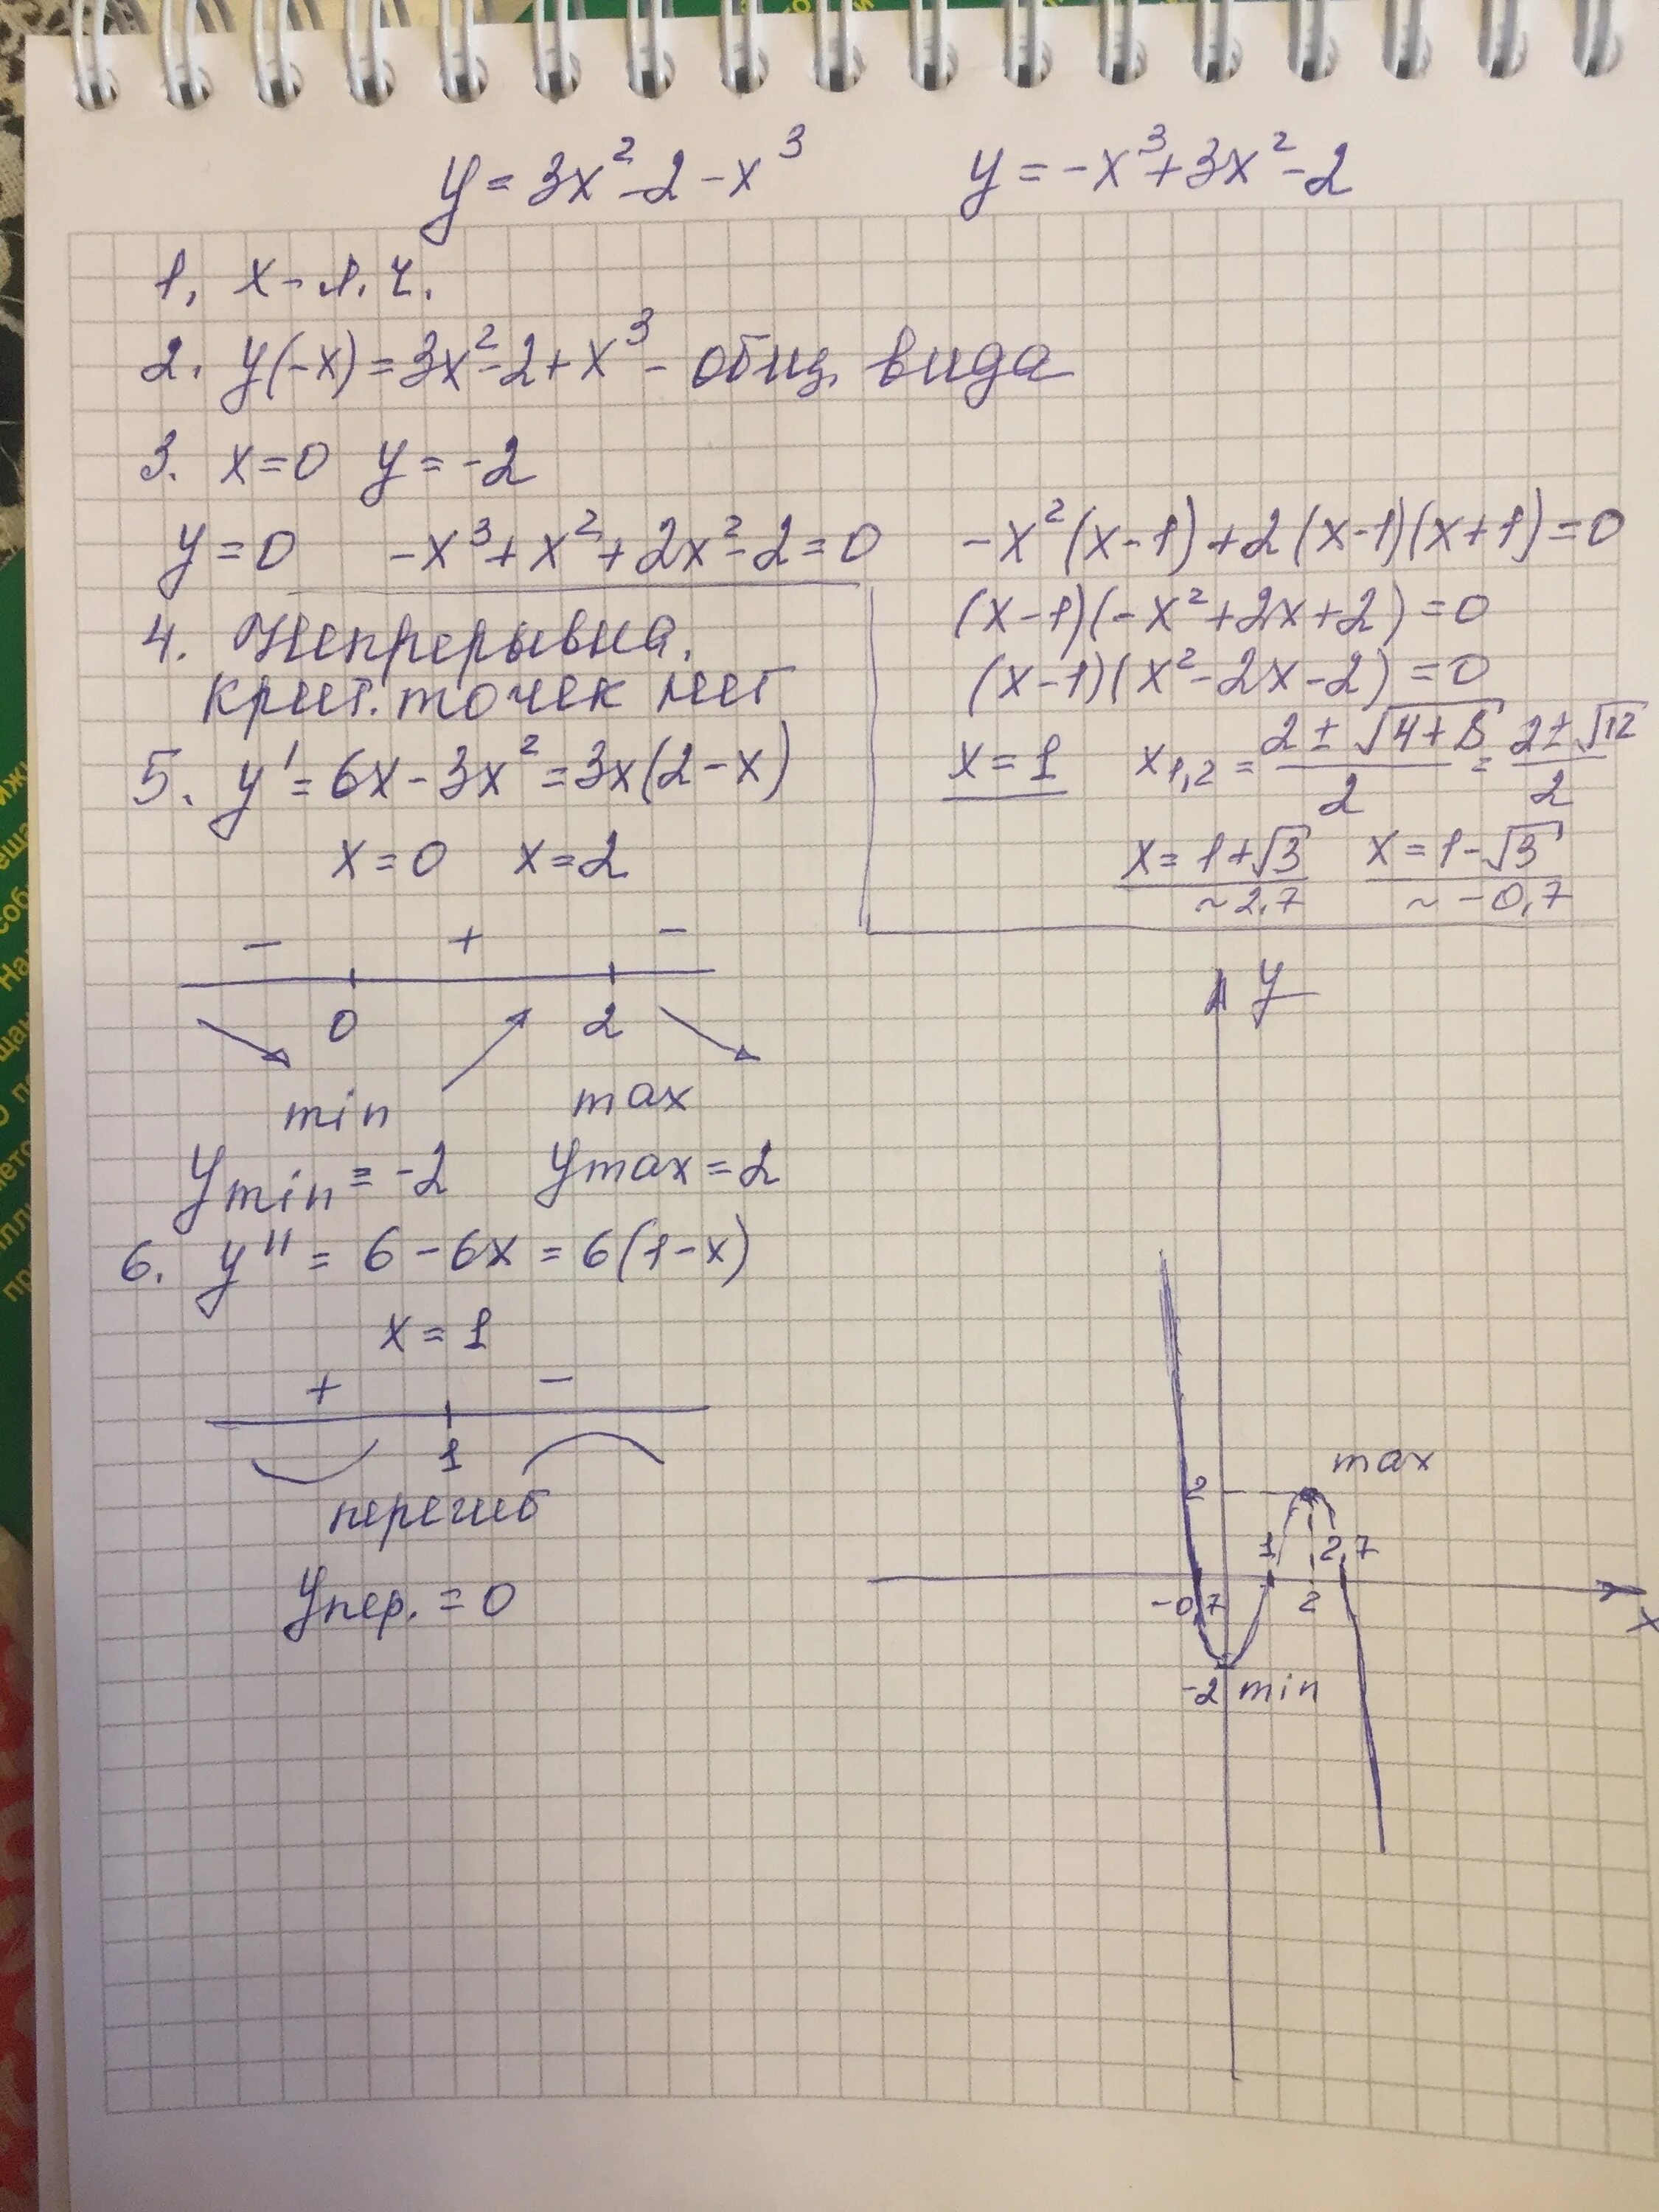 y = 3x² - 2 - x³    y = -x³ + 3x² - 2
1. x - л.ч.
2. y(-x) = 3x² - 2 + x³ - общ. вида
3. x = 0  y = -2
y = 0  -x³ + x² + 2x² - 2 = 0
-x²(x-1) + 2(x-1)(x+1) = 0
(x-1)(-x² + 2x + 2) = 0
(x-1)(x² - 2x - 2) = 0
x = 1  x₁,₂ = (2 ± √(4+8))/2 = (2 ± √12)/2
x = 1+√3  x = 1-√3
~2,7  ~ -0,7
4. Непрерывна.
крит. точек нет
5. y' = 6x - 3x² = 3x(2-x)
x = 0  x = 2
-  +  -
0  2
min  max
y min = -2  y max = 2
6. y'' = 6 - 6x = 6(1-x)
x = 1
+  -
1
перегиб
y пер. = 0
y
max
2
1  2,7
-0,7  2  x
-2 min